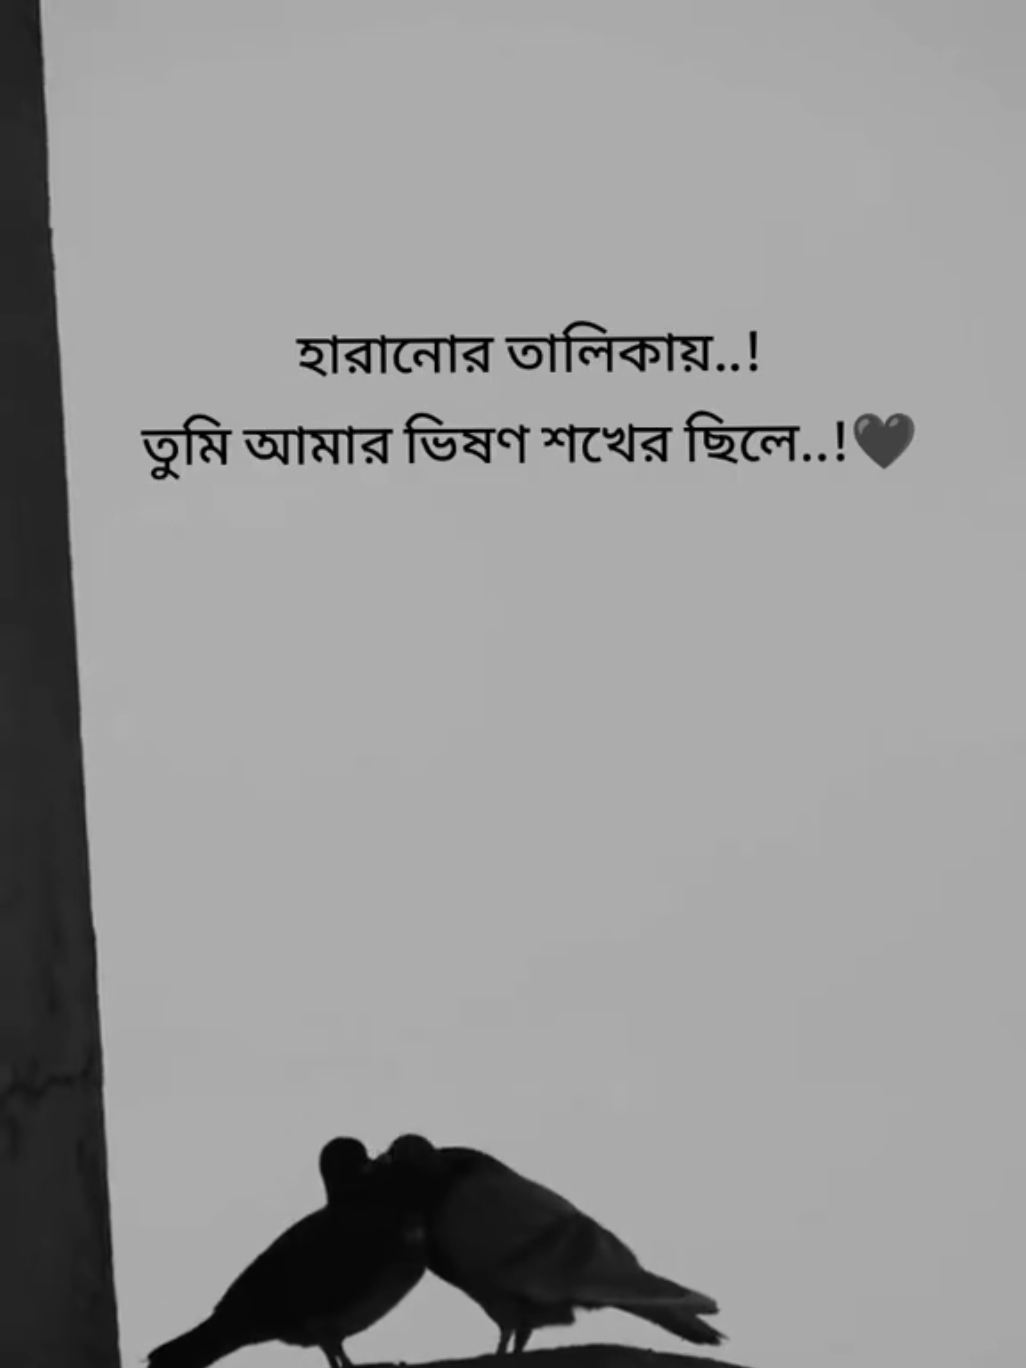 হারানোর তালিকায়..!
তুমি আমার ভিষণ শখের ছিলে..!🖤